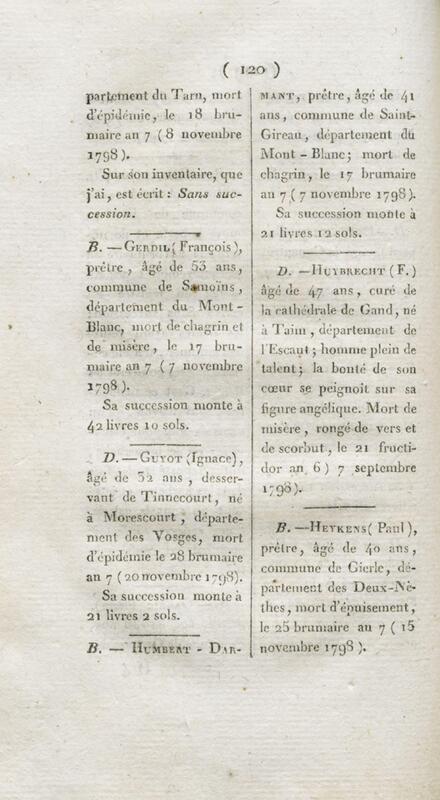 ( 120 )
partement du Tarn, mort
d'épidémie, le 18 bru-
maire an 7 ( 8 novembre
1798 ).
Sur son inventaire, que
j'ai, est écrit : Sans suc-
cession.
B. — GERDIL ( François ),
prêtre, âgé de 53 ans,
commune de Samoïns,
département du Mont-
Blanc, mort de chagrin et
de misère, le 17 bru-
maire an 7 ( 7 novembre
1798 ).
Sa succession monte à
42 livres 10 sols.
D. — GUYOT (Ignace),
âgé de 32 ans, desser-
vant de Tinnecourt, né
à Morescourt, départe-
ment des Vosges, mort
d'épidémie le 28 brumaire
an 7 ( 20 novembre 1798).
Sa succession monte à
21 livres 2 sols.
B. — HUMBERT - DAR-
MANT, prêtre, âgé de 41
ans, commune de Saint-
Gireau, département du
Mont-Blanc; mort de
chagrin, le 17 brumaire
an 7 ( 7 novembre 1798 ).
Sa succession monte à
21 livres 12 sols.
D. — HUYBRECHT ( F. )
âgé de 47 ans, curé de
la cathédrale de Gand, né
à Taim, département de
l'Escaut; homme plein de
talent; la bonté de son
cœur se peignoit sur sa
figure angélique. Mort de
misère, rongé de vers et
de scorbut, le 21 fructi-
dor an 6 ) 7 septembre
1798).
B. — HEYKENS ( Paul ),
prêtre, âgé de 40 ans,
commune de Gierle, dé-
partement des Deux-Nè-
thes, mort d'épuisement,
le 25 brumaire au 7 ( 15
novembre 1798 ).